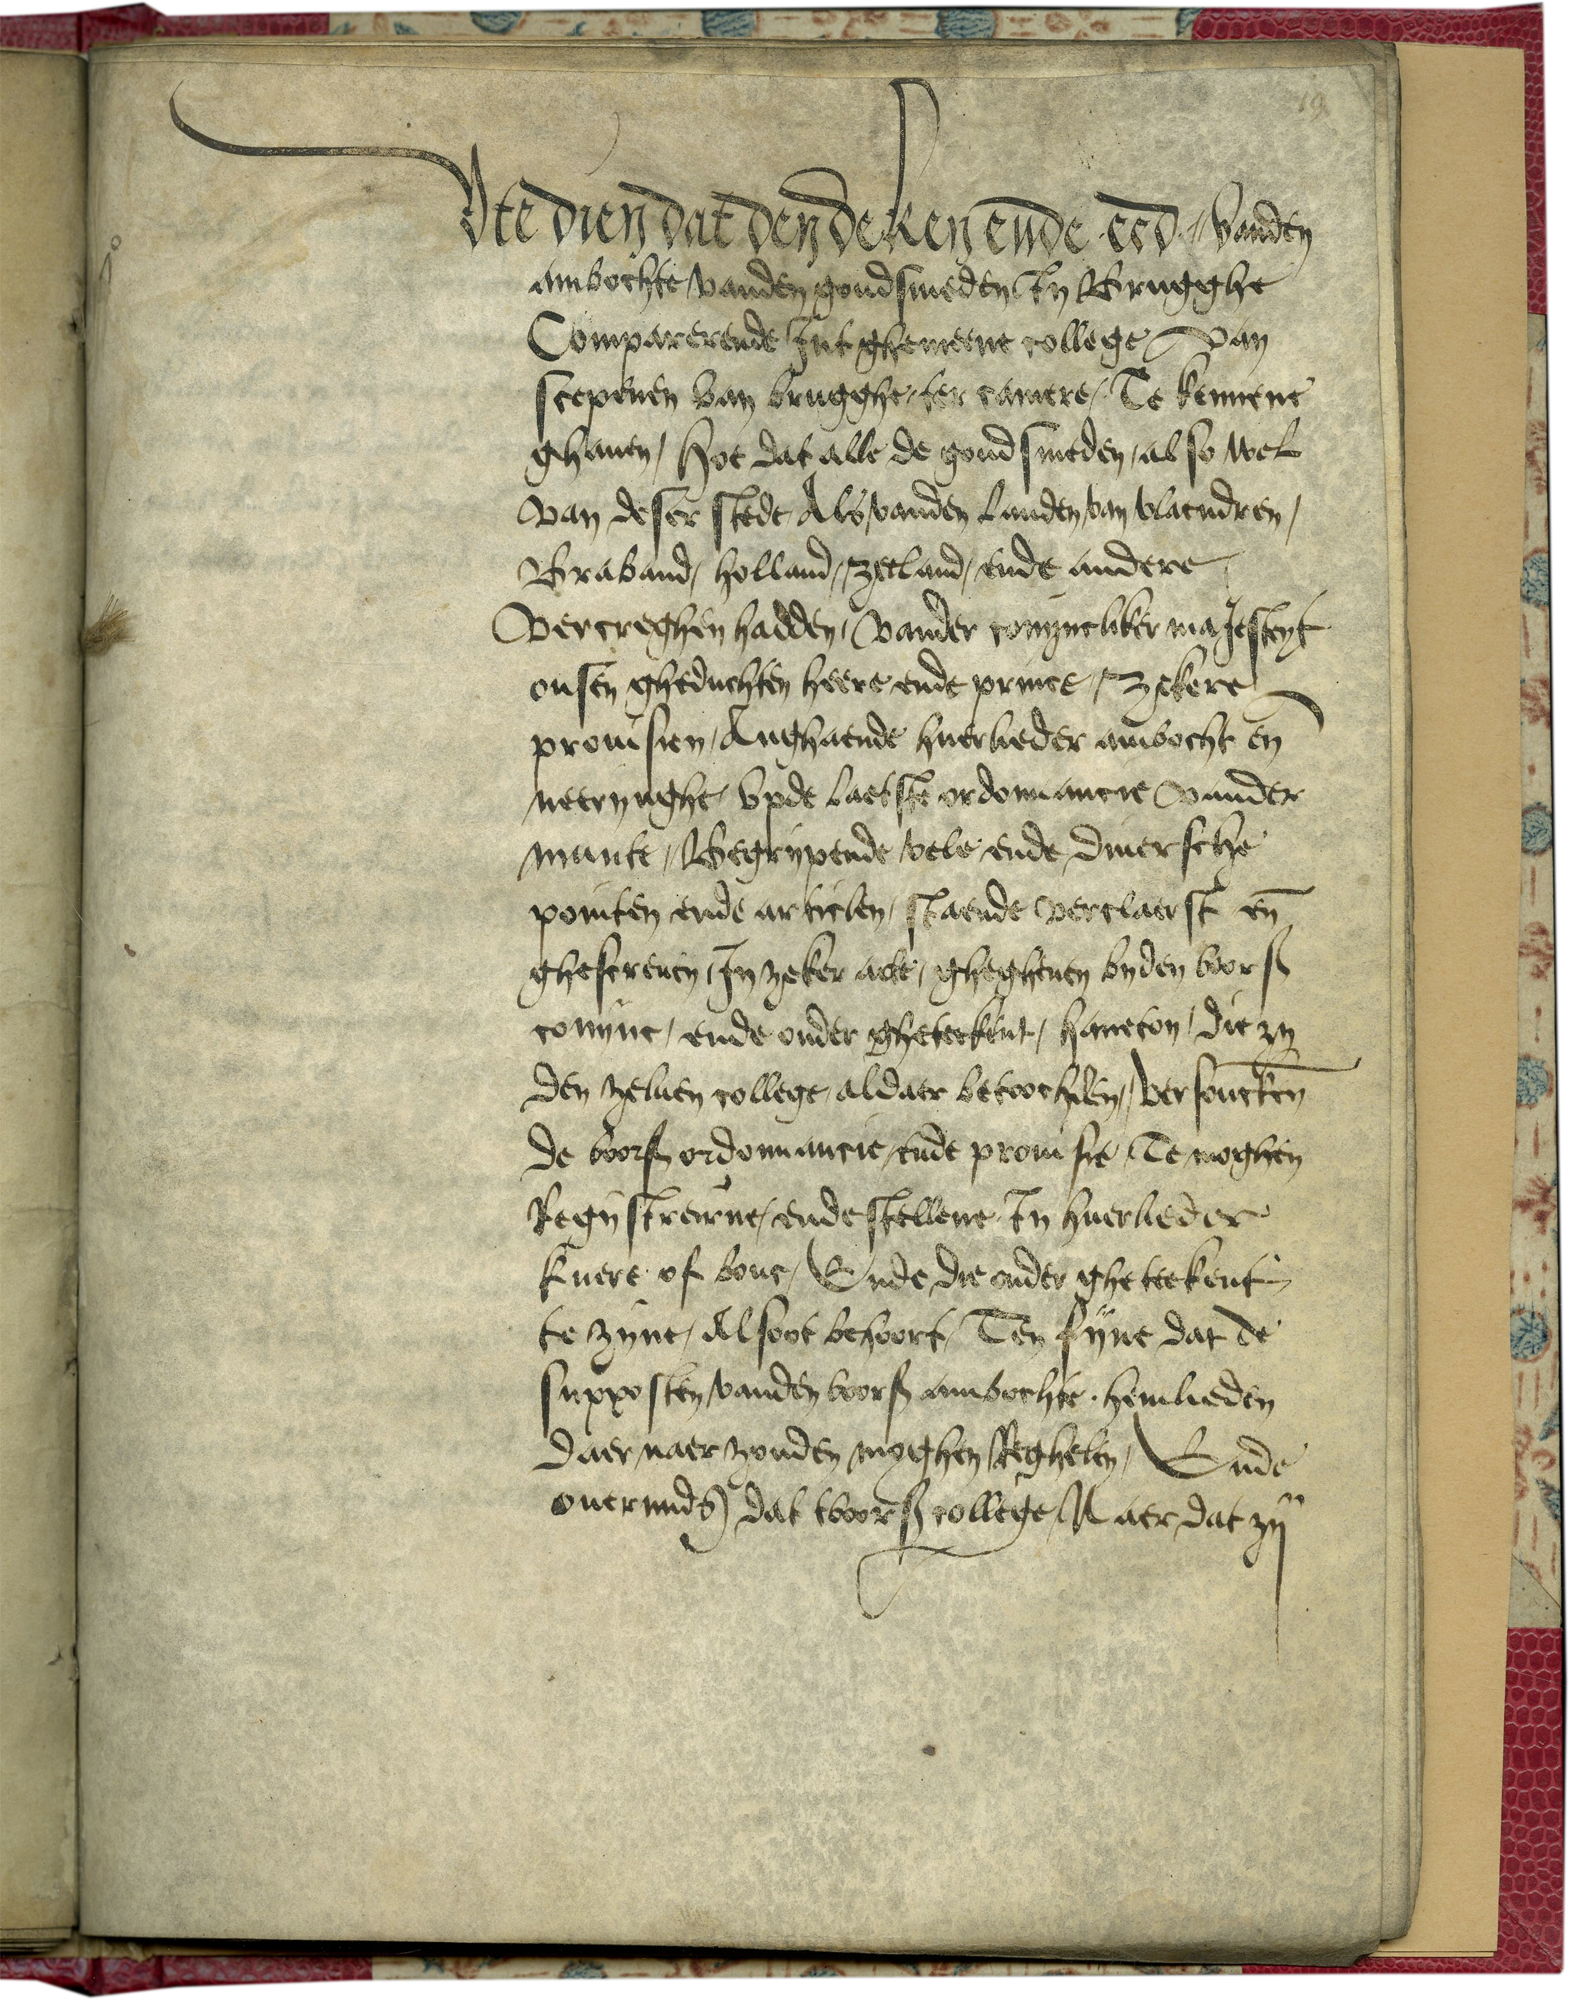 19
Ute dien dat den deken ende eed // vanden
ambochte / vanden goudsmeden In Brugghe
Comparerende Int ghemeene college van
scepenen van brugghe / ter camere / Te kennene
ghauen / hoe dat alle de goudsmeden / also wel
van deser stede Als / vanden landen / van vlaendren /
Braband / holland / zeeland / ende andere
vercreghen hadden / vander conijncliker maJesteyt
onsen gheduchten heere ende prince / zekere
prouisien / Anghaende huerlieder ambocht en̄
neerynghe / vpde laetste ordonnancie vander
munte // Begrijpende vele ende diuersche
pointen ende articlen / staende verclaerst en̄
ghescreuen / In zeker acte / ghegheuen byden voors
conijnc / ende onder gheteekent / haneton / die zy
den zeluen college / aldaer betoochden // versouckende
de voors ordonnancie / ende prouisie / Te moghen
Registreirne / ende stellene In huerlieder
kuere of bouc / Ende die onder gheteekent
te zijne / Alsoot behoort / Ten fijne dat de
supposten / vanden voors ambochte . hemlieden
daer naer zouden moghen Reghelen / Ende
ouermids dat tvoors college / Naer dat zij